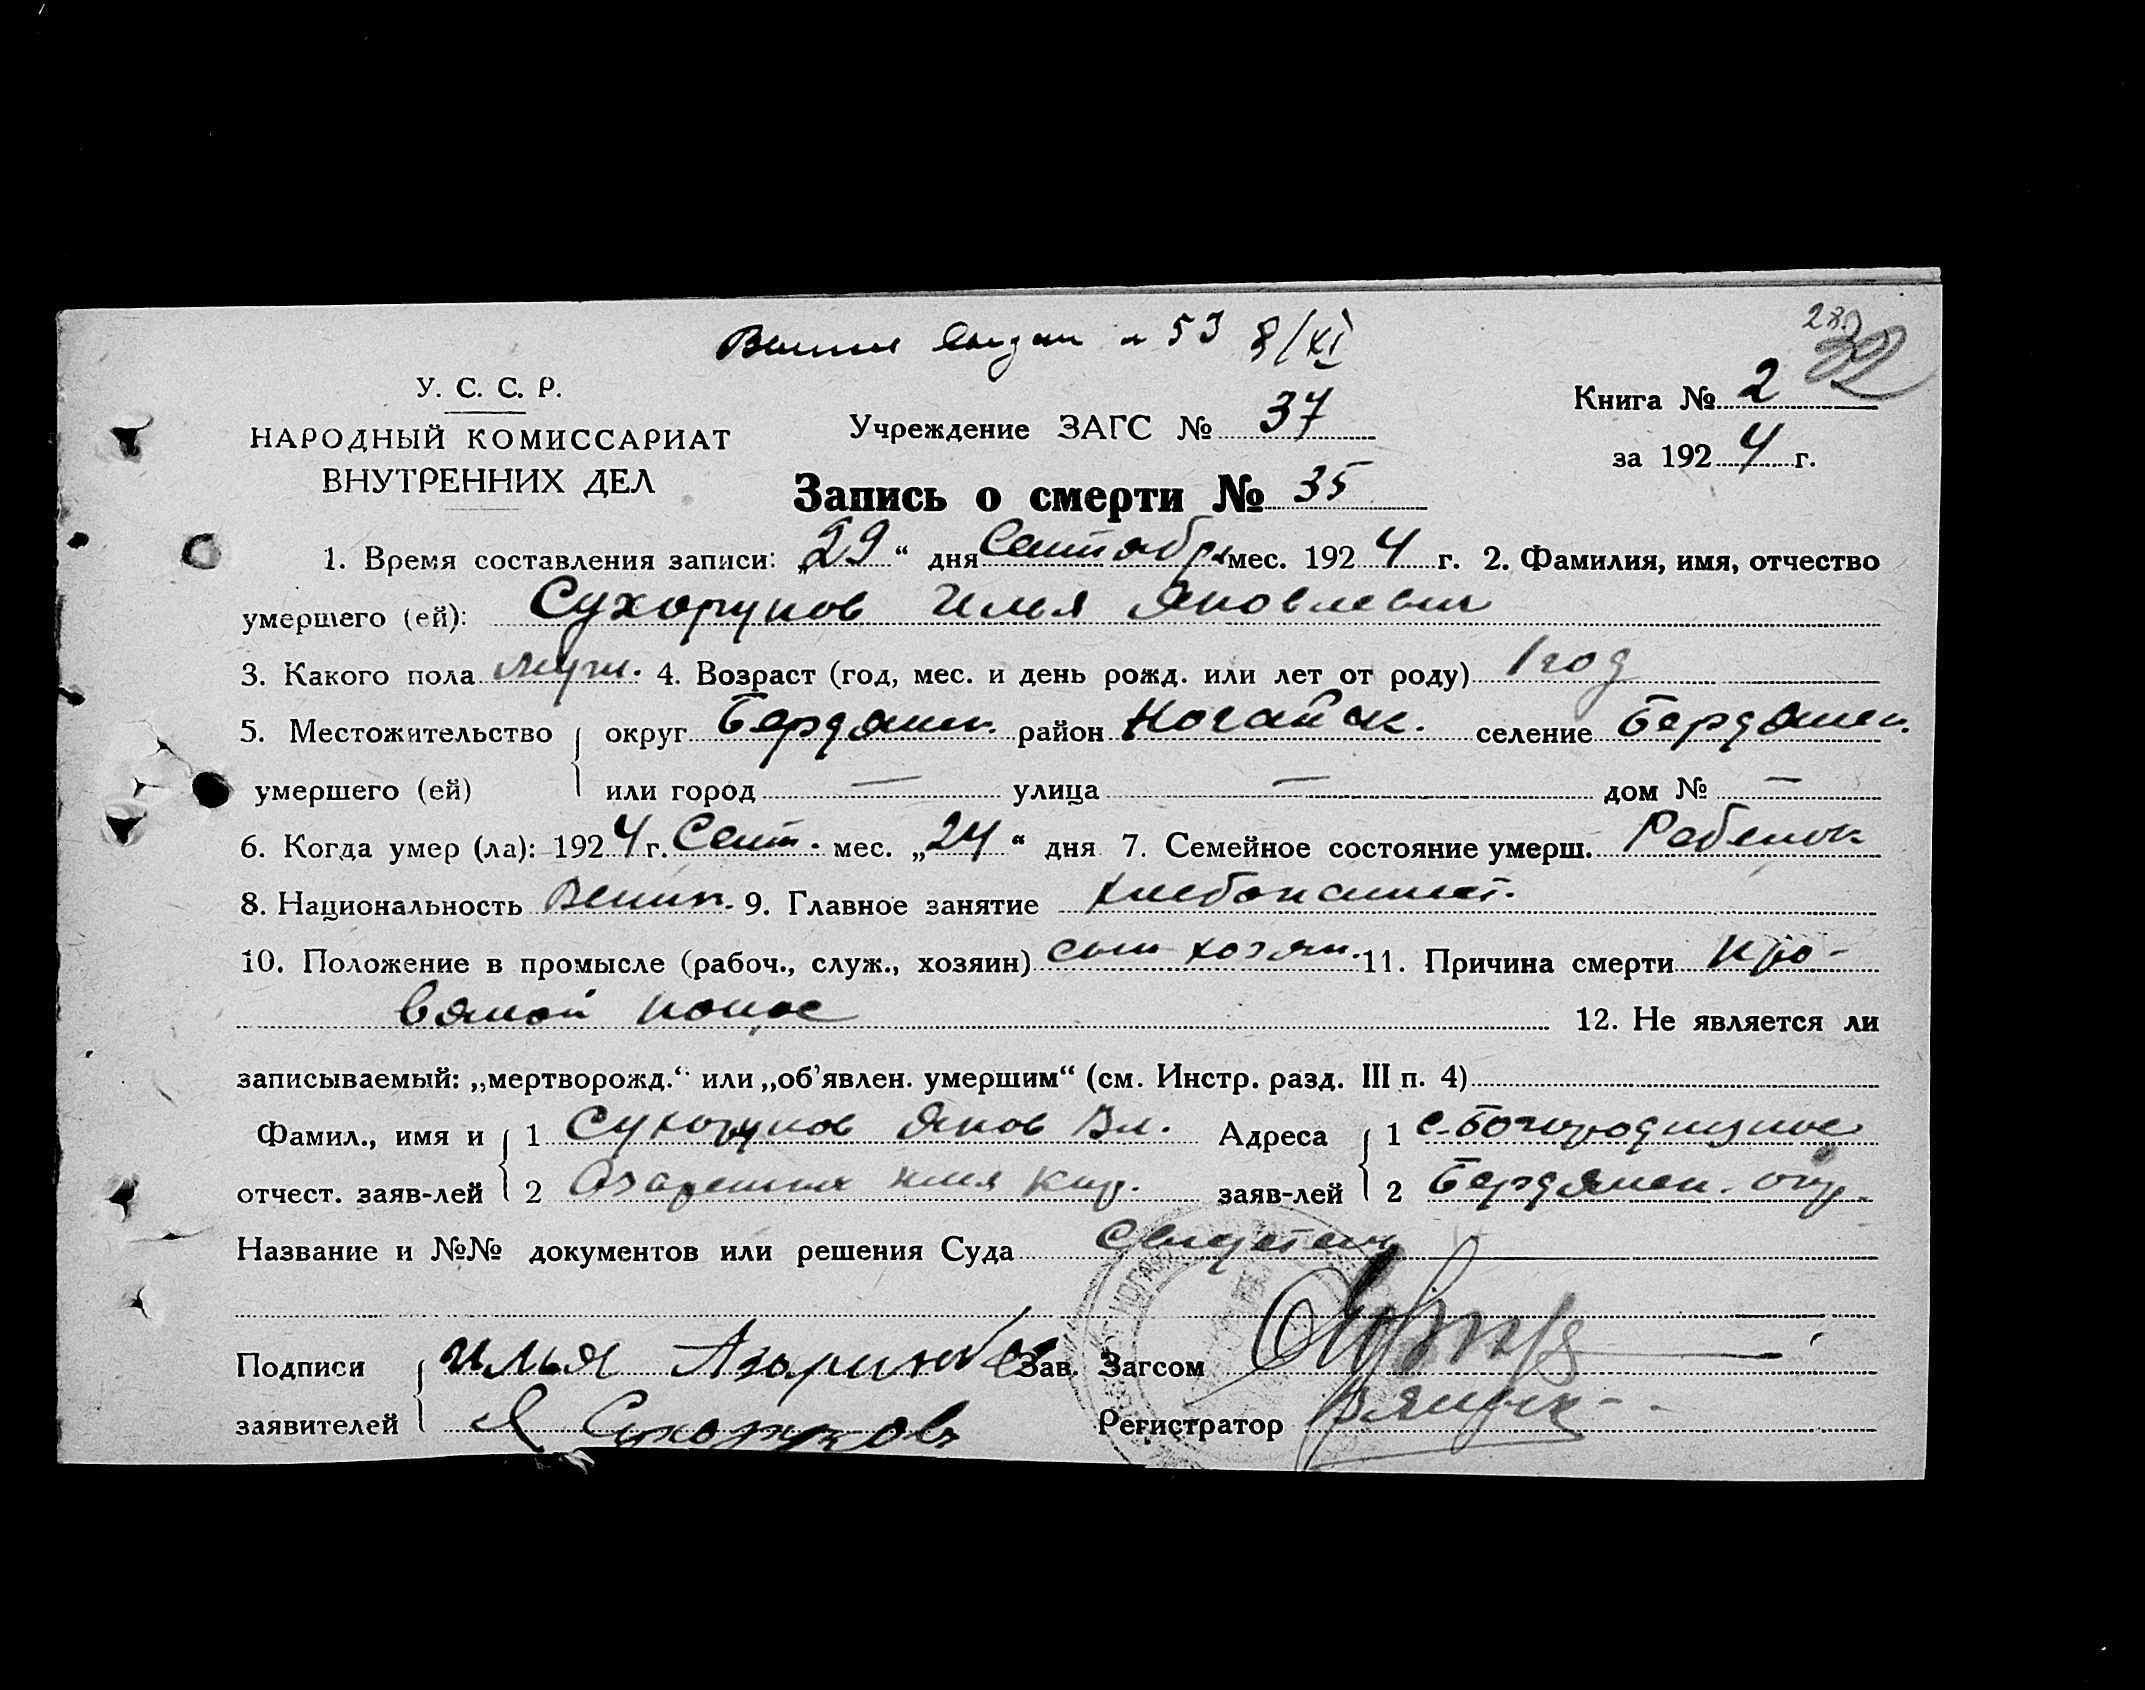 28.
32
№ 53 8/XI
У. С. С. Р.
НАРОДНЫЙ КОМИССАРИАТ
ВНУТРЕННИХ ДЕЛ
Учреждение ЗАГС № 37
Книга № 2
за 1924 г.
Запись о смерти № 35
1. Время составления записи: „29“ дня Сентября мес. 1924 г. 2. Фамилия, имя, отчество
умершего (ей): Сухоруков Илья Яковлевич
3. Какого пола муж. 4. Возраст (год, мес. и день рожд. или лет от роду) 1 год
5. Местожительство округ Бердянск. район Ногайск. селение Бердянск.
умершего (ей) или город — улица — дом № —
6. Когда умер (ла): 1924 г. Сент. мес. „24“ дня 7. Семейное состояние умерш. Ребенок
8. Национальность Велик. 9. Главное занятие хлебопашест.
10. Положение в промысле (рабоч., служ., хозяин) сын хозяин. 11. Причина смерти Кро-
вяной понос 12. Не является ли
записываемый: „мертворожд.“ или „об’явлен. умершим“ (см. Инстр. разд. III п. 4)
Фамил., имя и 1 Сухоруков Яков Вл. Адреса 1 с. Богородицкое
отчест. заяв-лей 2 Илья Кир. заяв-лей 2 Бердянск. окр.
Название и №№ документов или решения Суда
Подписи Илья Зав. Загсом
заявителей Я Сухоруковъ Регистратор